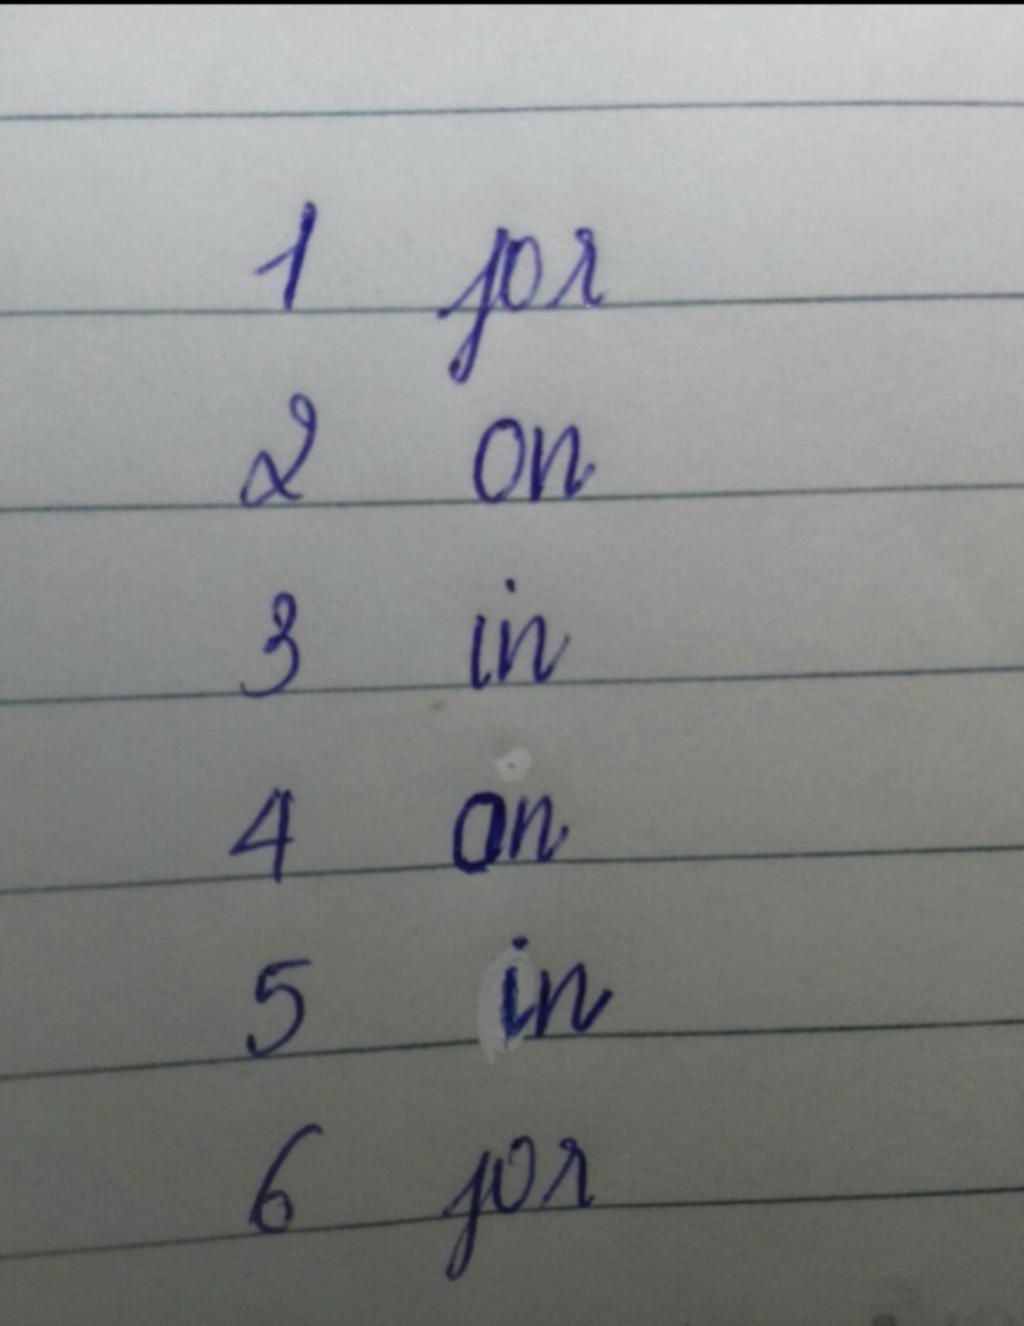 1 for
2 on
3 in
4 on
5 in
6 for